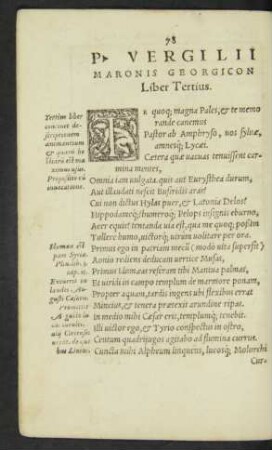 78
P. VERGILII
MARONIS GEORGICON
Liber Tertius.
Te quoq; magna Pales, & te memo
rande canemus
Pastor ab Amphryso, nos sylvæ,
amnesq; Lycæi.
Cætera quæ vacuas tenuissent car-
mina mentes,
Omnia iam vulgata. quis aut Eurysthea durum,
Aut illaudati nescit Busiridis aras?
Cui non dictus Hylas puer, & Latonia Delos?
Hippodameq; humeroq; Pelops insignis eburno,
Acer equis? tentanda via est, qua me quoq; possim
Tollere humo, victorq; virum volitare per ora.
Primus ego in patriam mecū (modo vita supersit)
Aonio rediens deducam vertice Musas,
Primus Idumæas referam tibi Mantua palmas,
Et viridi in campo templum de marmore ponam,
Propter aquam, tardis ingens ubi flexibus errat
Mincius, & tenera prætexit arundine ripas.
In medio mihi Cæsar erit, templumq; tenebit.
Illi victor ego, & Tyrio conspectus in ostro,
Centum quadriiugos agitabo ad flumina currus.
Cuncta mihi Alpheum linquens, lucosq; Molorchi
Cur-
Tertius liber
continet de-
scriptionem
animantium
Propositio cū
invocatione.